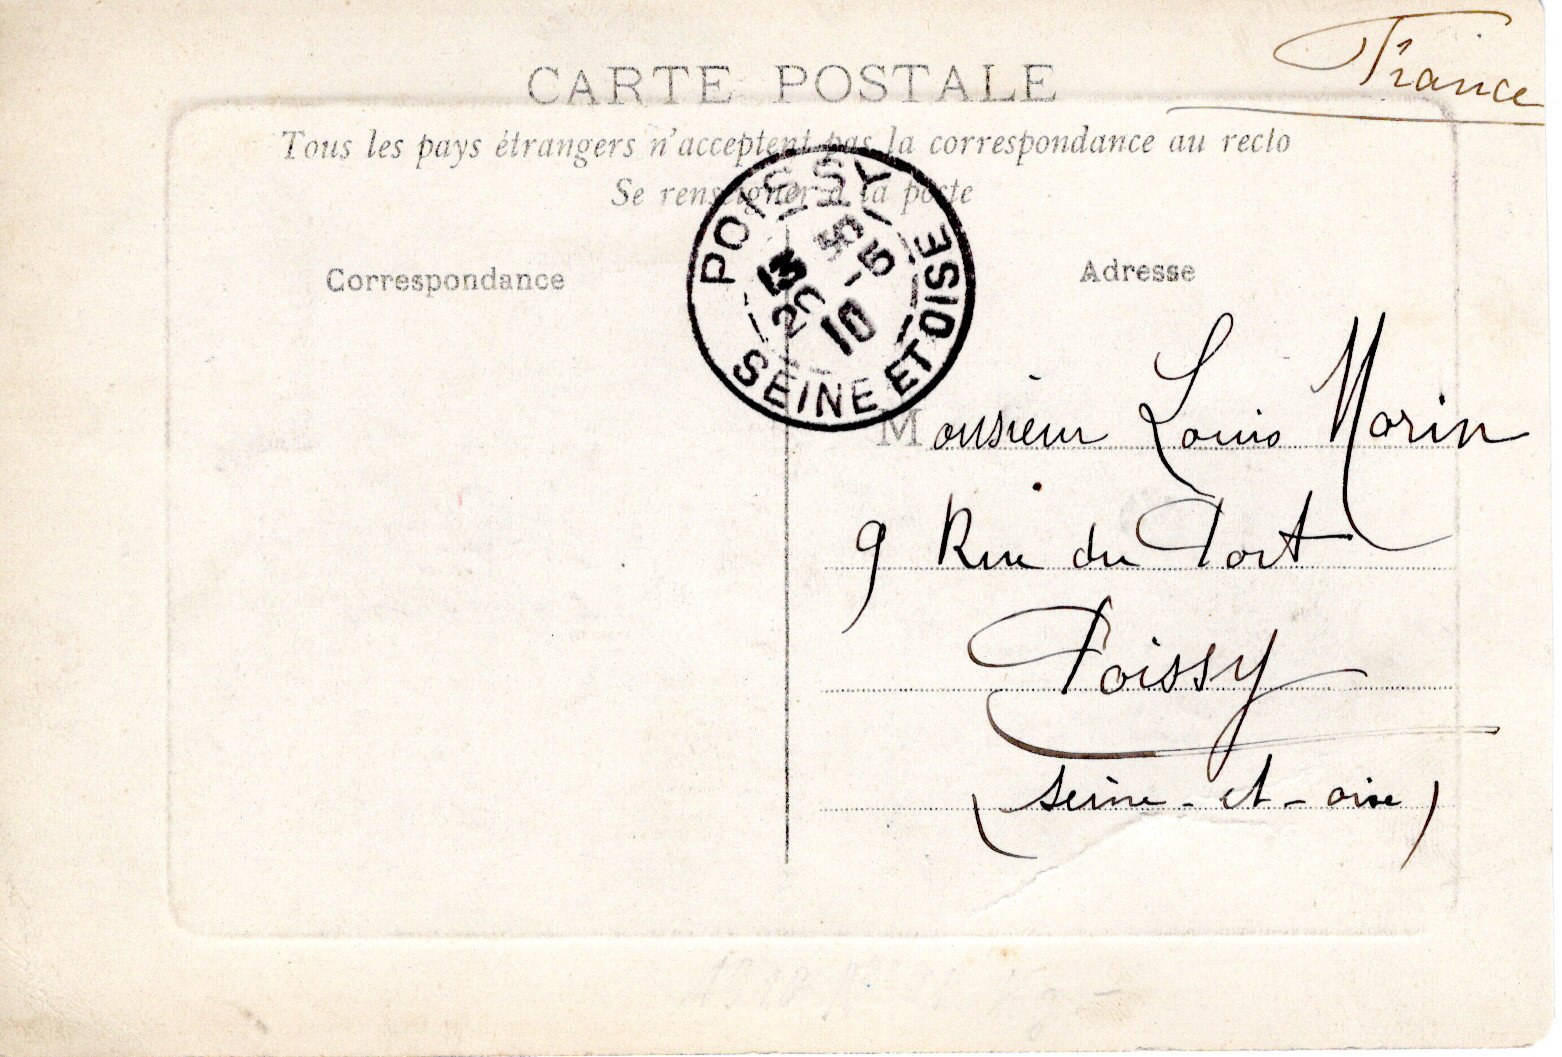 France
CARTE POSTALE
Tous les pays étrangers n'acceptent pas la correspondance au recto
Se renseigner à la poste
POISSY
5 - 5
10
SEINE ET OISE
Correspondance
Adresse
Monsieur Louis Morin
9 Rue du Port
Poissy
(Seine-et-oise)